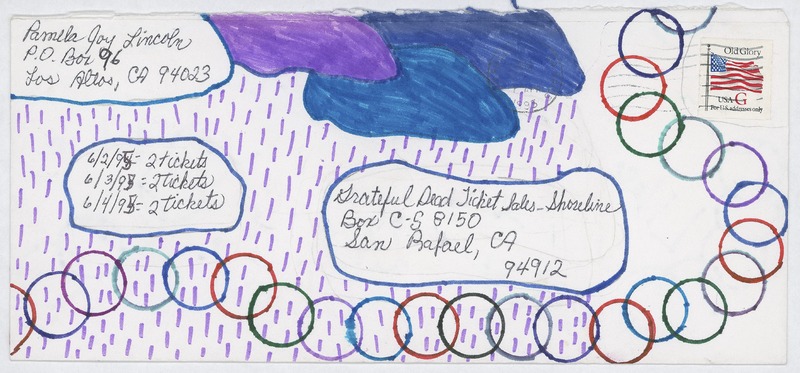 Pamela Joy Lincoln
P.O. Box 96
Los Altos, CA 94023
Old Glory
USA G
For U.S. addresses only
6/2/95 = 2 tickets
6/3/95 = 2 Tickets
6/4/95 = 2 tickets
Grateful Dead Ticket Sales - Shoreline
Box C-S 8150
San Rafael, CA
94912